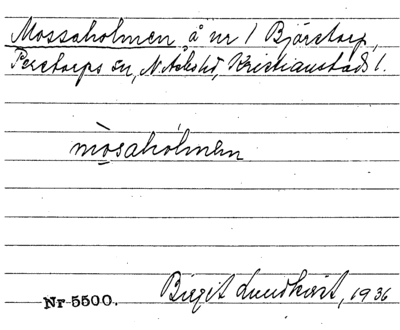 Mossaholmen å nr 1 Björstorp,
Perstorps sn, N. Åsbo hd, Kristianstads l.
mosahólmen
Birgit Lundkvist, 1936
Nr 5500.